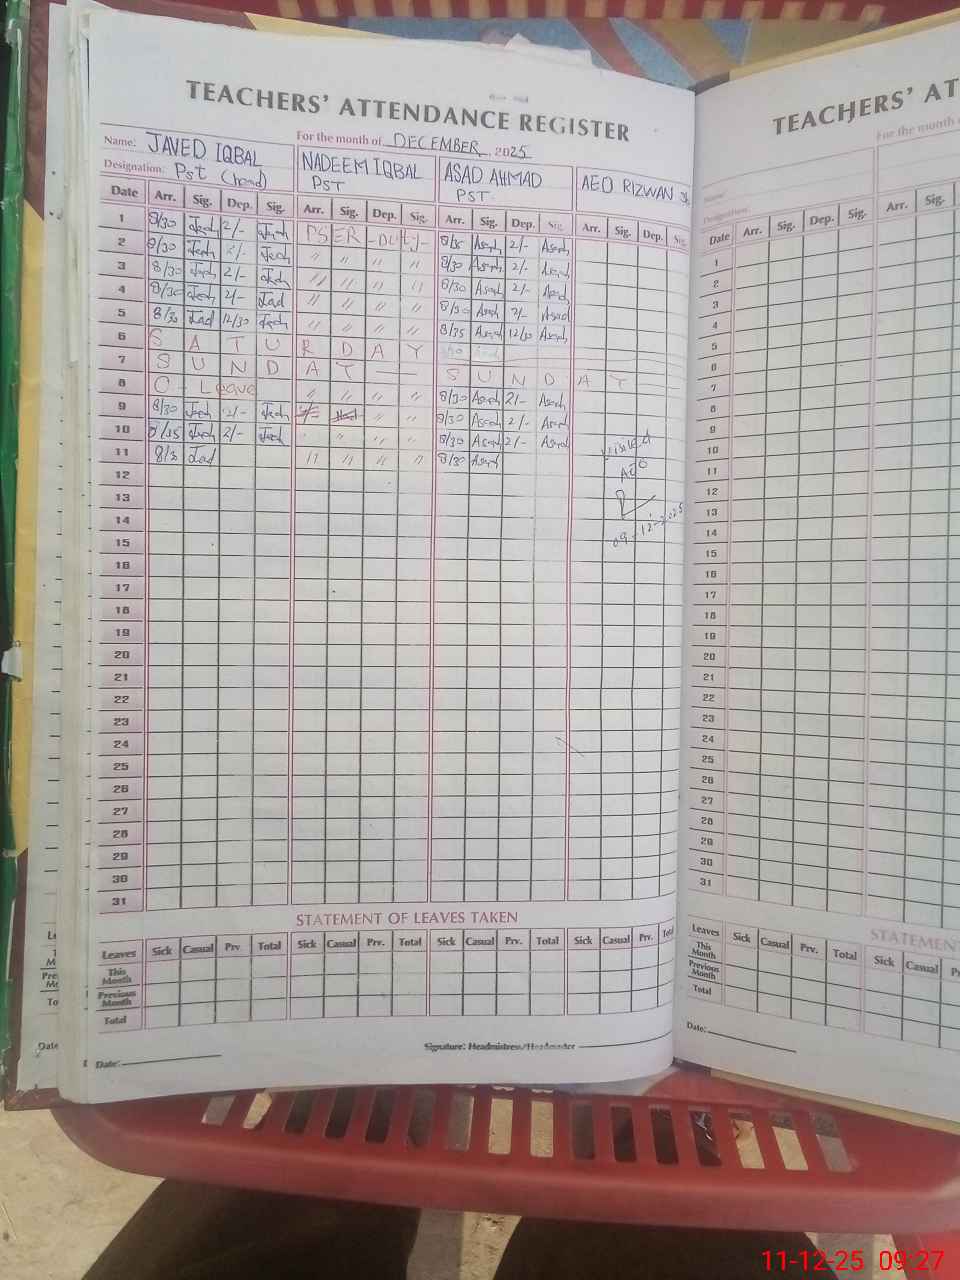 TEACHERS' ATTENDANCE REGISTER
Name: JAVED IQBAL For the month of DECEMBER, 2025
Designation: PST (head) NADEEM IQBAL PST ASAD AHMAD PST. AEO RIZWAN
Date Arr. Sig. Dep. Sig. Arr. Sig. Dep. Sig. Arr. Sig. Dep. Sig. Arr. Sig. Dep. Sig.
1 8/30 2/- PSER - Duty - 8/35 Asad 2/- Asad
2 8/30 2/- " " " " 8/30 Asad 2/- Asad
3 8/30 2/- " " " " 8/30 Asad 2/- Asad
4 8/30 2/- " " " " 8/30 Asad 2/- Asad
5 8/30 12/30 " " " " 8/35 Asad 12/30 Asad
6 S A T U R D A Y
7 S U N D A Y — S U N D A Y
8 C - Leave " " " " 8/30 Asad 2/- Asad
9 8/30 2/- " " 8/30 Asad 2/- Asad
10 8/35 2/- " " " " 8/30 Asad 2/- Asad
11 8/30 " " " " 8/30 Asad
visited
AEO
09-12-2025
12
13
14
15
16
17
18
19
20
21
22
23
24
25
26
27
28
29
30
31
STATEMENT OF LEAVES TAKEN
Leaves Sick Casual Prv. Total Sick Casual Prv. Total Sick Casual Prv. Total Sick Casual Prv. Total
This Month
Previous Month
Total
Date: Signature: Headmistress/Headmaster
TEACHERS' AT
For the month o
Name:
Designation:
Date Arr. Sig. Dep. Sig. Arr. Sig.
1
2
3
4
5
6
7
8
9
10
11
12
13
14
15
16
17
18
19
20
21
22
23
24
25
26
27
28
29
30
31
STATEMEN
Leaves Sick Casual Prv. Total Sick Casual
This Month
Previous Month
Total
Date:
11-12-25 09:27